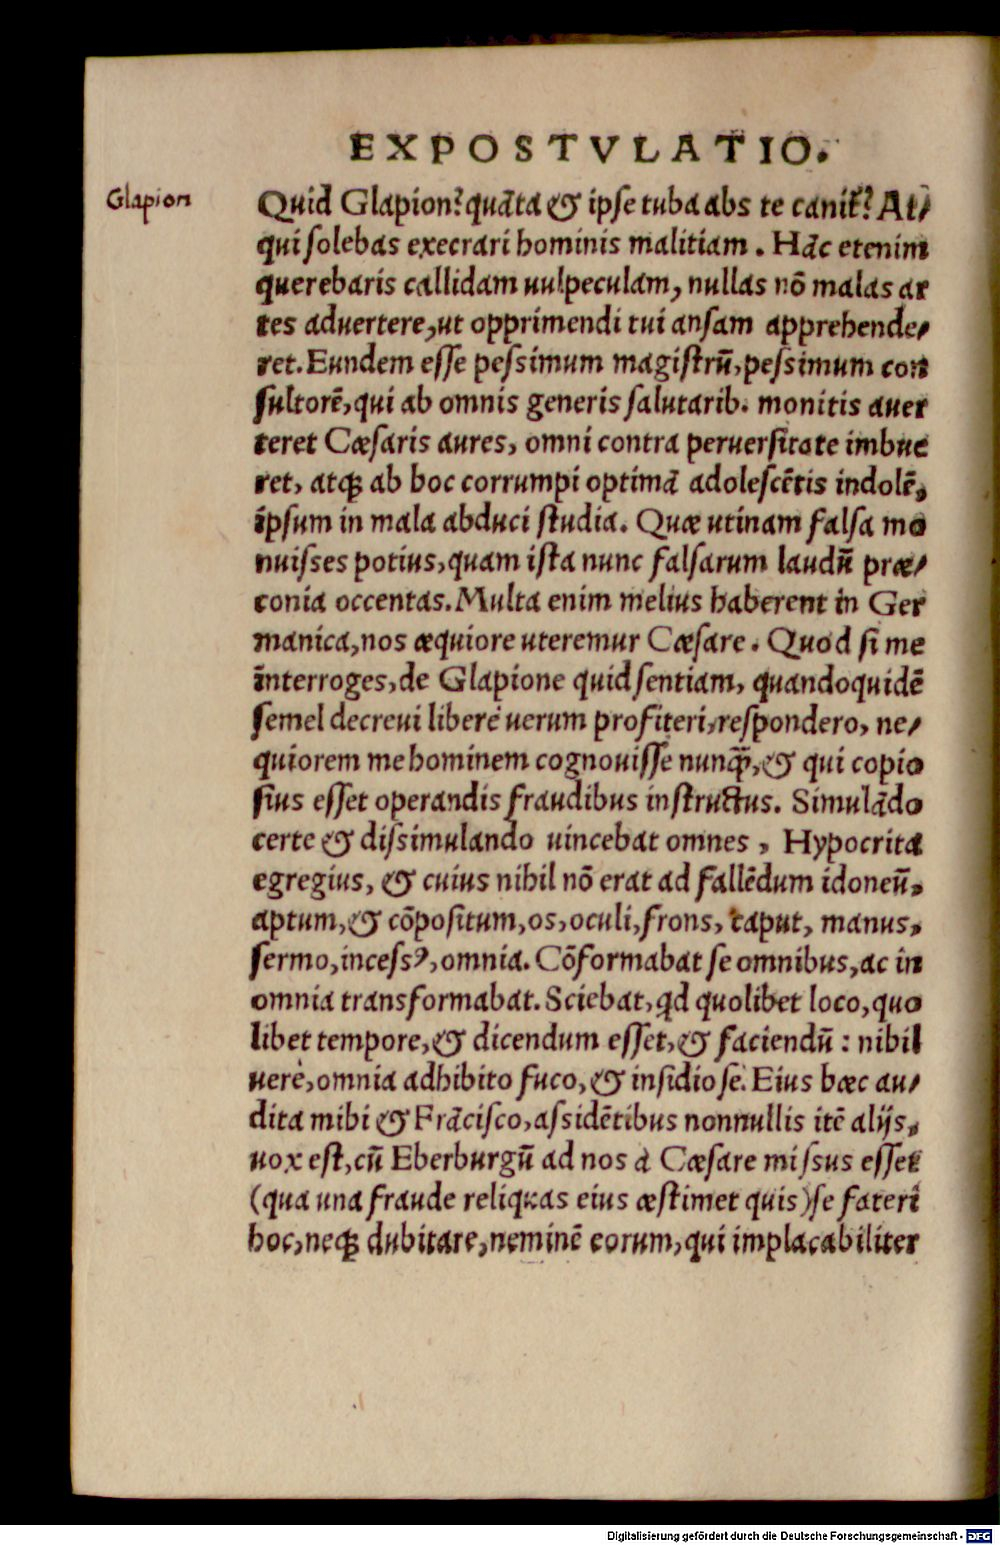 EXPOSTVLATIO.
Glapion
Quid Glapion? quāta & ipse tuba abs te canit̃? At/
qui solebas execrari hominis malitiam. Hāc etenim
querebaris callidam uulpeculam, nullas nō malas ar
tes aduertere, ut opprimendi tui ansam apprehende/
ret. Eundem esse pessimum magistrū, pessimum con
sultorē, qui ab omnis generis salutarib. monitis auer
teret Cæsaris aures, omni contra peruersitate imbue
ret, atq; ab hoc corrumpi optimā adolescētis indolē,
ipsum in mala abduci studia. Quæ utinam falsa mo
nuisses potius, quam ista nunc falsarum laudū præ/
conia occentas. Multa enim melius haberent in Ger
manica, nos æquiore uteremur Cæsare. Quod si me
interroges, de Glapione quid sentiam, quandoquidē
semel decreui liberè uerum profiteri, respondero, ne/
quiorem me hominem cognouisse nunq̃, & qui copio
sius esset operandis fraudibus instructus. Simulādo
certe & dissimulando uincebat omnes, Hypocrita
egregius, & cuius nihil nō erat ad fallēdum idoneū,
aptum, & cōpositum, os, oculi, frons, caput, manus,
sermo, incessꝰ, omnia. Cōformabat se omnibus, ac in
omnia transformabat. Sciebat, qd quolibet loco, quo
libet tempore, & dicendum esset, & faciendū: nihil
uerè, omnia adhibito fuco, & insidiosè. Eius hæc au/
dita mihi & Frācisco, assidētibus nonnullis itē alijs,
uox est, cū Eberburgū ad nos à Cæsare missus esset
(qua una fraude reliquas eius æstimet quis) se fateri
hoc, neq; dubitare, neminē eorum, qui implacabiliter
Digitalisierung gefördert durch die Deutsche Forschungsgemeinschaft - DFG